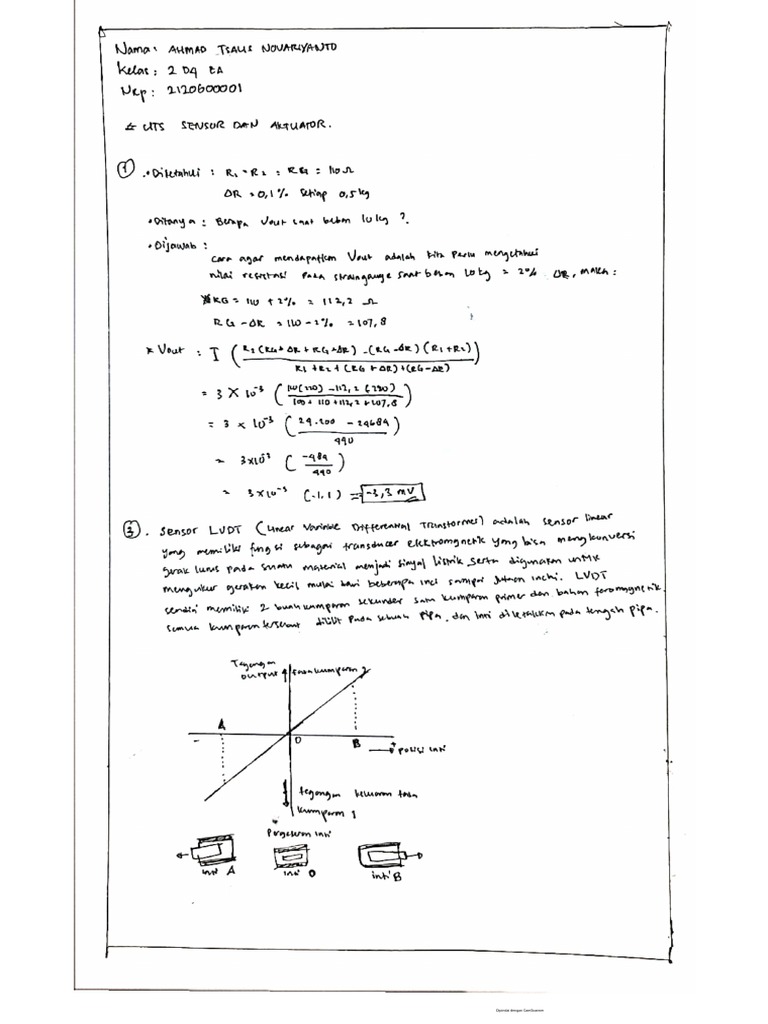 Nama: AHMAD TSALIS NOVARIYANTO
Kelas: 2 D4 EA
Nrp: 2120600001
UTS SENSOR DAN AKTUATOR.
① • Diketahui : R1 = R2 = RG = 110 Ω
ΔR = 0,1% setiap 0,5 kg
• Ditanya : Berapa Vout saat beban 10 kg ?
• Dijawab :
cara agar mendapatkan Vout adalah kita perlu mengetahui
nilai resistasi pada straingauge saat beban 10 kg = 2% ΔR, maka :
RG = 110 + 2% = 112,2 Ω
RG - ΔR = 110 - 2% = 107,8
* Vout : I ( R2 (RG + ΔR + RG + ΔR) - (RG - ΔR) (R1 + R2) / R1 + R2 + (RG + ΔR) + (RG - ΔR) )
= 3 × 10⁻³ ( 110 (220) - 112,2 (220) / 100 + 110 + 112,2 + 107,8 )
= 3 × 10⁻³ ( 24.200 - 24684 / 440 )
= 3×10⁻³ ( -484 / 440 )
= 3×10⁻³ (-1,1) = -3,3 mV
③. Sensor LVDT (Linear Variable Differential Transformer) adalah sensor linear
yang memiliki fungsi sebagai transducer elektromagnetik yang bisa mengkonversi
gerak lurus pada suatu material menjadi sinyal listrik serta digunakan untuk
mengukur gerakan kecil mulai dari beberapa inci sampai jutaan inchi. LVDT
sendiri memiliki 2 buah kumparan sekunder satu kumparan primer dan bahan feromagnetik.
semua kumparan tersebut dililit pada sebuah pipa, dan inti diletakkan pada tengah pipa.
Tegangan
output fasa kumparan 2
A
- O B + posisi inti
tegangan keluaran fasa
kumparan 1
Pergeseran inti
inti A inti O inti B
Dipindai dengan CamScanner